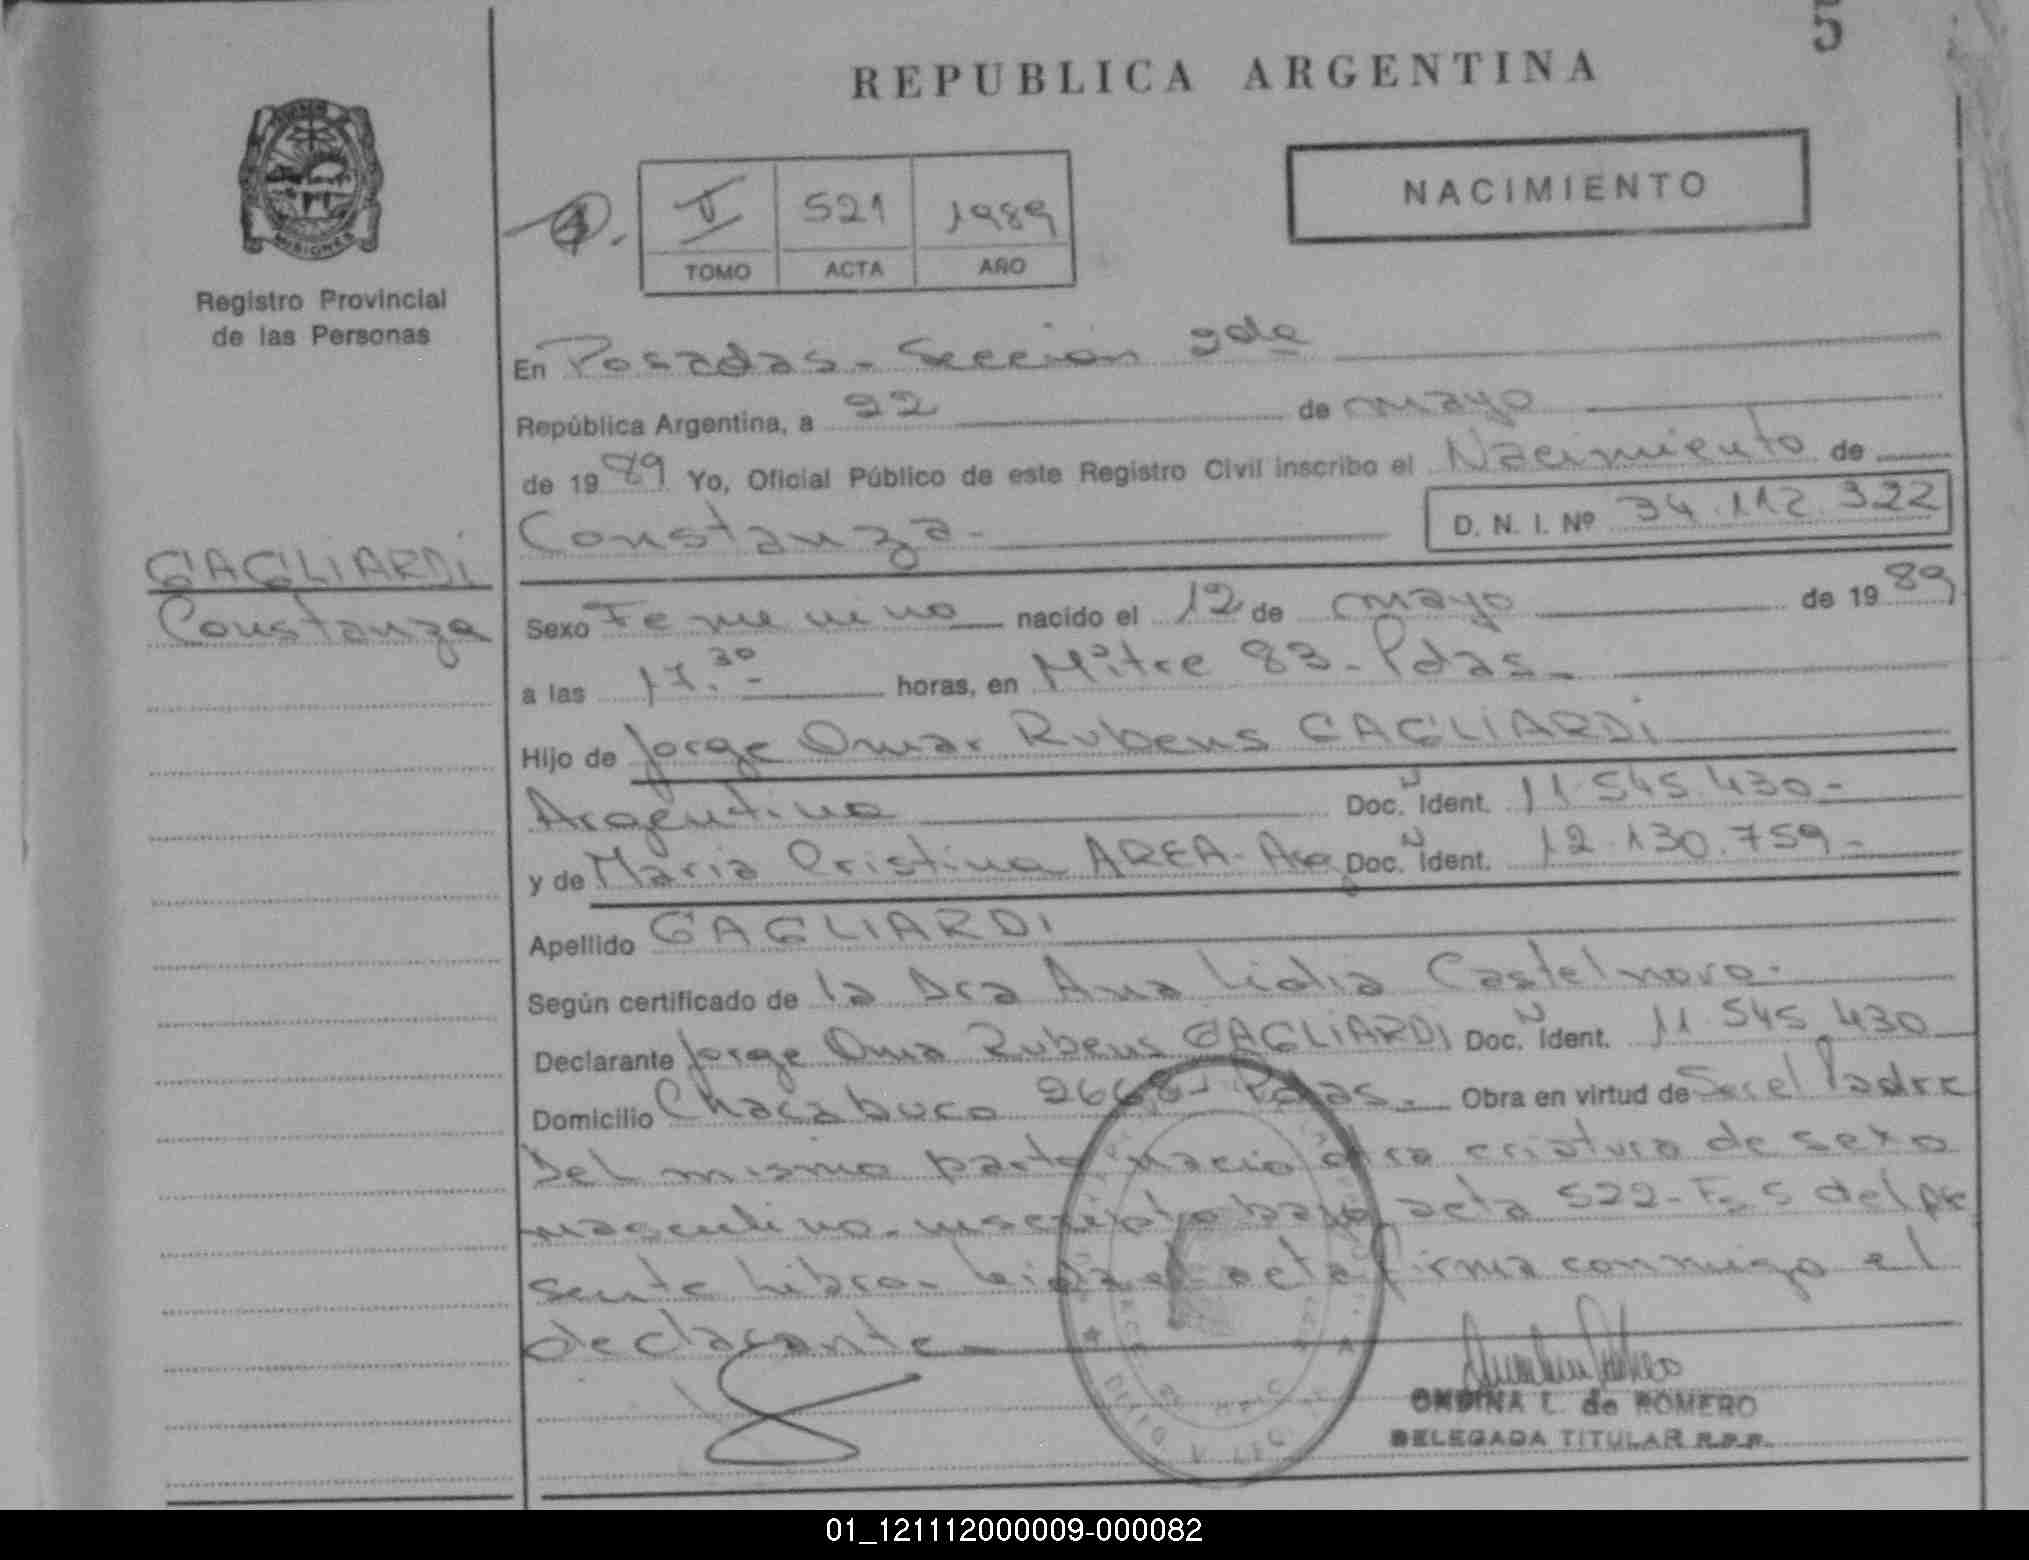 5
REPUBLICA ARGENTINA
NACIMIENTO
II 521 1989
TOMO ACTA AÑO
MISIONES
Registro Provincial
de las Personas
GAGLIARDI
Constanza
En Posadas - Sección 2da
República Argentina, a 22 de mayo
de 1989 Yo, Oficial Público de este Registro Civil inscribo el Nacimiento de
Constanza - D. N. I. Nº 34.112.322
Sexo Femenino nacido el 12 de mayo de 1989
a las 17.30 horas, en Mitre 83 - Pdas -
Hijo de Jorge Omar Rubens GAGLIARDI
Argentino Doc. N Ident. 11.545.430 -
y de Maria Cristina AREA - Arg Doc. N Ident. 12.130.759 -
Apellido GAGLIARDI
Según certificado de la Dra Ana Lidia Castelnovo -
Declarante Jorge Oma Rubens GAGLIARDI Doc. N Ident. 11.545.430
Domicilio Chacabuco 2668 - Pdas - Obra en virtud de Ser el Padre
Del mismo parto nacio otra criatura de sexo
masculino - inscripto bajo acta 522 - Fs 5 del pre
sente Libro - Leida el acta firma conmigo el
declarante -
ONDINA L. de ROMERO
DELEGADA TITULAR R.P.P.
01_121112000009-000082